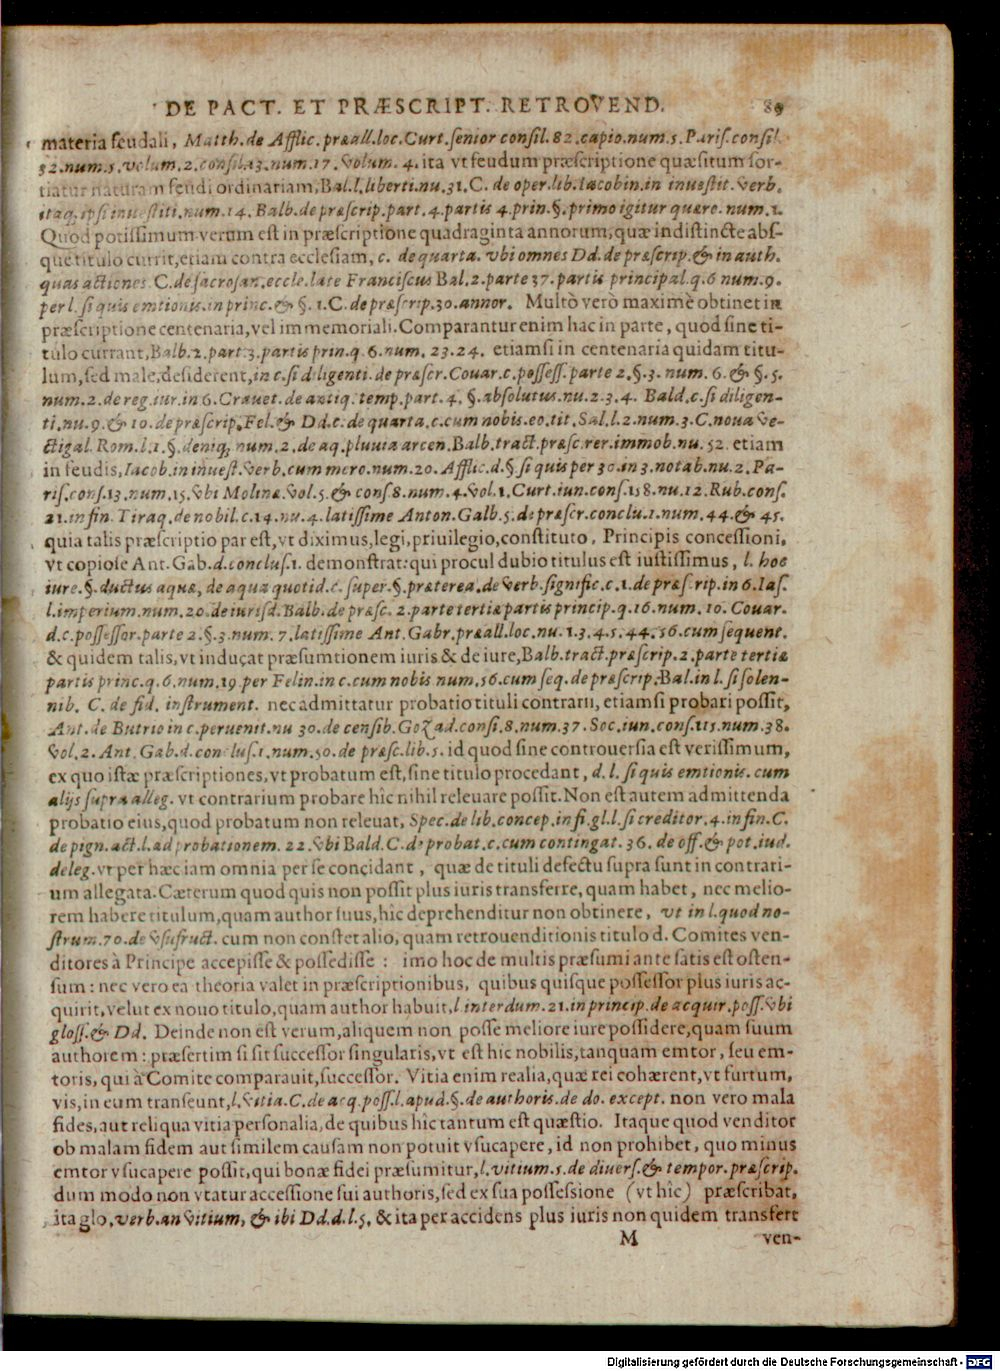 DE PACT. ET PRÆSCRIPT. RETROVEND. 89
materia feudali, Matth. de Afflic. præall. loc. Curt. senior consil. 82. capio. num. 5. Paris. consil.
32. num. 5. volum. 2. consil. 13. num. 17. volum. 4. ita vt feudum præscriptione quæsitum sor-
tiatur naturam feudi ordinariam, Bal. l. liberti. nu. 31. C. de oper. lib. Iacobin. in inuestit. verb.
itaq, ipsi inuestiti. num. 14. Balb. de præscrip. part. 4. partis 4. prin. §. primo igitur quære. num. 1.
Quod potissimum verum est in præscriptione quadraginta annorum, quæ indistincte abs-
que titulo currit, etiam contra ecclesiam, c. de quarta. vbi omnes Dd. de præscrip. & in auth.
quas actiones. C. de sacrosan. eccle. late Franciscus Bal. 2. parte 37. partis principal. q. 6 num. 9.
per l. si quis emtionis. in princ. & §. 1. C. de præscrip. 30. annor. Multò verò maximè obtinet in
præscriptione centenaria, vel immemoriali. Comparantur enim hac in parte, quod sine ti-
tulo currant, Balb. 2. part. 3. partis prin. q. 6. num. 23. 24. etiamsi in centenaria quidam titu-
lum, sed male, desiderent, in c. si diligenti. de præscr. Couar. c. possess. parte 2. §. 3. num. 6. & §. 5.
num. 2. de reg. iur. in 6. Crauet. de antiq. temp. part. 4. §. absolutus. nu. 2. 3. 4. Bald. c. si diligen-
ti. nu. 9. & 10. de præscrip. Fel. & Dd. c. de quarta. c. cum nobis. eo. tit. Sal. l. 2. num. 3. C. noua ve-
ctigal. Rom. l. 1. §. deniq, num. 2. de aq. pluuia arcen. Balb. tract. præsc. rer. immob. nu. 52. etiam
in feudis, Iacob. in inuest. verb. cum mero. num. 20. Afflic. d. § si quis per 30. in 3. notab. nu. 2. Pa-
ris. cons. 13. num. 15. vbi Molinæ. vol. 5. & cons. 8. num. 4. vol. 1. Curt. iun. cons. 158. nu. 12. Rub. cons.
21. in fin. Tiraq. de nobil. c. 14. nu. 4. latissime Anton. Galb. 5. de præscr. conclu. 1. num. 44. & 45.
quia talis præscriptio par est, vt diximus, legi, priuilegio, constituto, Principis concessioni,
vt copiose Ant. Gab. d. conclus. 1. demonstrat: qui procul dubio titulus est iustissimus, l. hoc
iure. §. ductus aquæ, de aqua quotid. c. super. §. præterea. de verb. signific. c. 1. de præscrip. in 6. Ias.
l. imperium. num. 20. de iurisd. Balb. de præsc. 2. parte tertiæ partis princip. q. 16. num. 10. Couar.
d. c. possessor. parte 2. §. 3. num. 7. latissime Ant. Gabr. præall. loc. nu. 1. 3. 4. 5. 44. 56. cum sequent.
& quidem talis, vt inducat præsumtionem iuris & de iure, Balb. tract. præscrip. 2. parte tertiæ
partis princ. q. 6. num. 19 per Felin. in c. cum nobis num. 56. cum seq. de præscrip. Bal. in l. si solen-
nib. C. de fid. instrument. nec admittatur probatio tituli contrarii, etiamsi probari possit,
Ant. de Butrio in c. peruenit. nu 30. de censib. Gozad. consi. 8. num. 37. Soc. iun. cons. 115. num. 38.
vol. 2. Ant. Gab. d. conclus. 1. num. 50. de præsc. lib. 5. id quod sine controuersia est verissimum,
ex quo istæ præscriptiones, vt probatum est, sine titulo procedant, d. l. si quis emtionis. cum
alijs supra alleg. vt contrarium probare hîc nihil releuare possit. Non est autem admittenda
probatio eius, quod probatum non releuat, Spec. de lib. concep. in fi. gl. l. si creditor. 4. in fin. C.
de pign. act. l. ad probationem. 22. vbi Bald. C. de probat. c. cum contingat. 36. de off. & pot. iud.
deleg. vt per hæc iam omnia per se concidant, quæ de tituli defectu supra sunt in contrari-
um allegata. Cæterum quod quis non possit plus iuris transferre, quam habet, nec melio-
rem habere titulum, quam author suus, hîc deprehenditur non obtinere, vt in l. quod no-
strum. 70. de vsufruct. cum non constet alio, quam retrouenditionis titulo d. Comites ven-
ditores à Principe accepisse & possedisse: imo hoc de multis præsumi ante satis est osten-
sum: nec vero ea theoria valet in præscriptionibus, quibus quisque possessor plus iuris ac-
quirit, velut ex nouo titulo, quam author habuit, l interdum. 21. in princip. de acquir. poss. vbi
gloss. & Dd. Deinde non est verum, aliquem non posse meliore iure possidere, quam suum
authorem: præsertim si sit successor singularis, vt est hîc nobilis, tanquam emtor, seu em-
toris, qui à Comite comparauit, successor. Vitia enim realia, quæ rei cohærent, vt furtum,
vis, in eum transeunt, l. vitia. C. de acq. poss. l. apud. §. de authoris. de do. except. non vero mala
fides, aut reliqua vitia personalia, de quibus hîc tantum est quæstio. Itaque quod venditor
ob malam fidem aut similem causam non potuit vsucapere, id non prohibet, quo minus
emtor vsucapere possit, qui bonæ fidei præsumitur, l. vitium. 5. de diuers. & tempor. præscrip.
dum modo non vtatur accessione sui authoris, sed ex sua possessione (vt hîc) præscribat,
ita glo. verb. an vitium, & ibi Dd. d. l. 5. & ita per accidens plus iuris non quidem transfert
M ven-
Digitalisierung gefördert durch die Deutsche Forschungsgemeinschaft - DFG